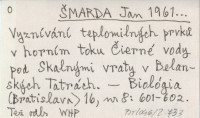 0 ŠMARDA Jan 1961...
Vyznívání teplomilných prvků
v horním toku Čierné vody
pod Skalnými vraty v Belan-
ských Tatrách. – Biológia
(Bratislava) 16, nr 8: 601-602.
Též odb. WHP